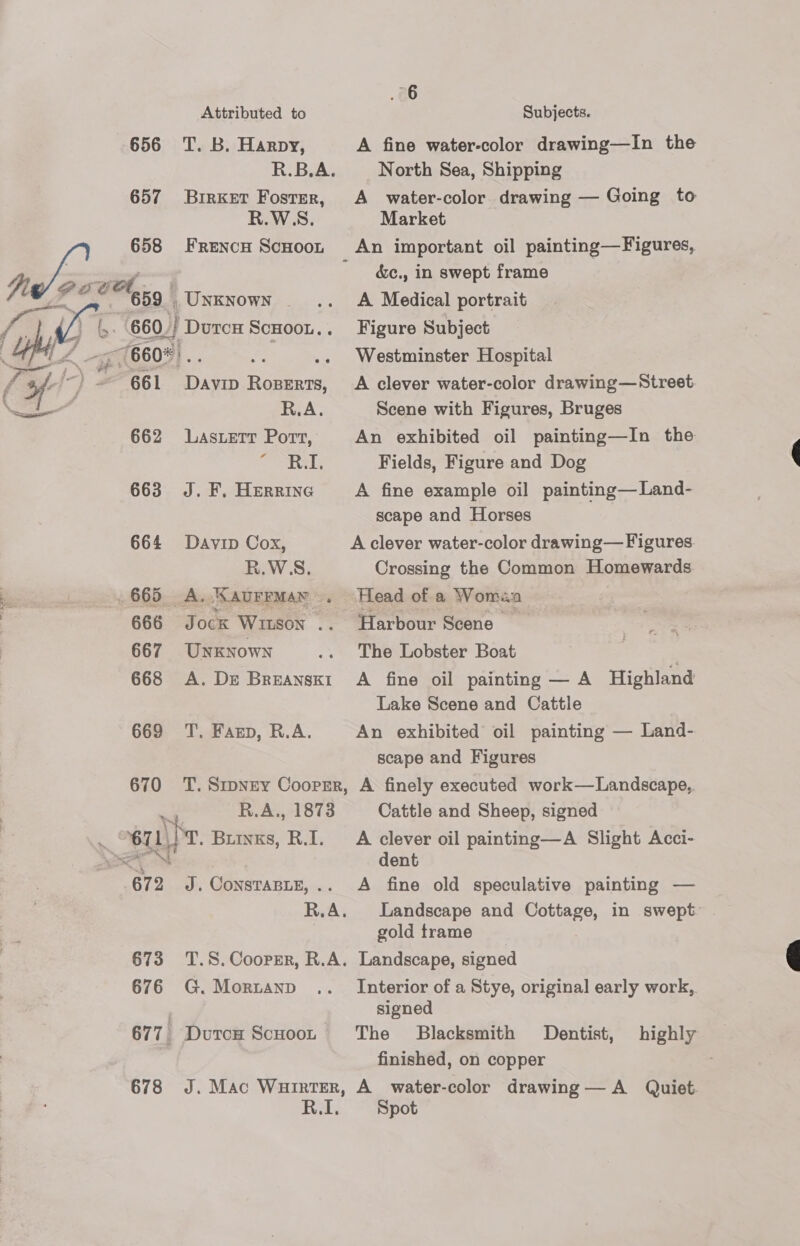 6
Attributed to Subjects.
656 T. B. HARDY, R.B.A. A fine water-color drawing—In the
North Sea, Shipping
657 BIRKET FOSTER, R.W.S. A water-color drawing — Going to
Market
658 FRENCH SCHOOL An important oil painting—Figures,
&c., in swept frame
659 UNKNOWN .. A Medical portrait
660 DUTCH SCHOOL.. Figure Subject
660* .. .. .. Westminster Hospital
661 DAVID ROBERTS, R.A. A clever water-color drawing—Street
Scene with Figures, Bruges
662 LASLETT POTT, R.I. An exhibited oil painting—In the
Fields, Figure and Dog
663 J. F. HERRING A fine example oil painting—Land-
scape and Horses
664 DAVID COX, R.W.S. A clever water-color drawing—Figures
Crossing the Common Homewards
665 A. KAUFFMAN . Head of a Woman
666 JOCK WILSON .. Harbour Scene
667 UNKNOWN .. The Lobster Boat
668 A. DE BREANSKI A fine oil painting — A Highland
Lake Scene and Cattle
669 T. FAED, R.A. An exhibited oil painting — Land-
scape and Figures
670 T. SIDNEY COOPER, R.A., 1873 A finely executed work—Landscape,
Cattle and Sheep, signed
671 T. BLINKS, R.I. A clever oil painting—A Slight Acci-
dent
672 J. CONSTABLE, .. R.A. A fine old speculative painting —
Landscape and Cottage, in swept
gold frame
673 T. S. COOPER, R.A. Landscape, signed
676 G. MORLAND .. Interior of a Stye, original early work,
signed
677 DUTCH SCHOOL The Blacksmith Dentist, highly
finished, on copper
678 J. MAC WHIRTER, R.I. A water-color drawing — A Quiet
Spot